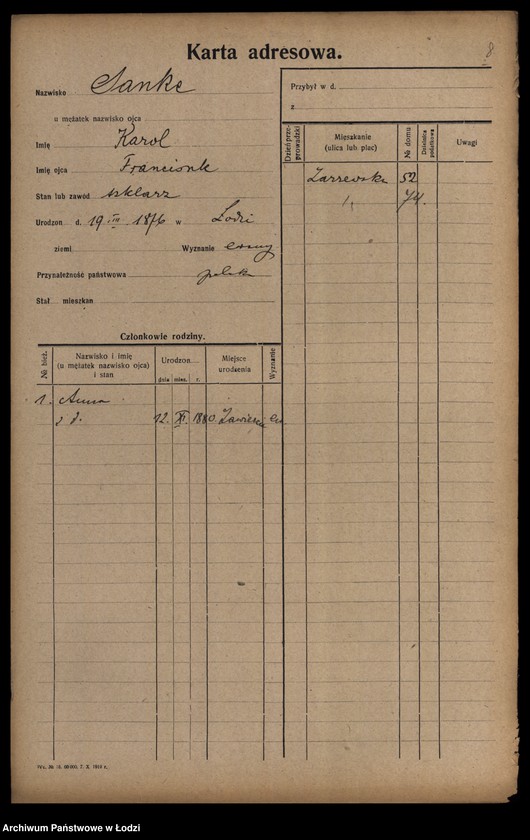 8
Karta adresowa.
Nazwisko Sanke
u mężatek nazwisko ojca
Imię Karol
Imię ojca Franciszek
Stan lub zawód szklarz
Urodzon d. 19 III 1876 w Łodzi
ziemi Wyznanie
Przynależność państwowa polsk
Stał. mieszkan
Przybył w d.
z
Dzień przeprowadzki Mieszkanie (ulica lub plac) № domu Dzielnica podatkowa Uwagi
Zarzewska 52
74.
Członkowie rodziny.
№ bież. Nazwisko i imię (u mężatek nazwisko ojca) i stan Urodzon Miejsce urodzenia Wyznanie
dnia mies. r.
1. Anna
12. XI 1880.
Archiwum Państwowe w Łodzi